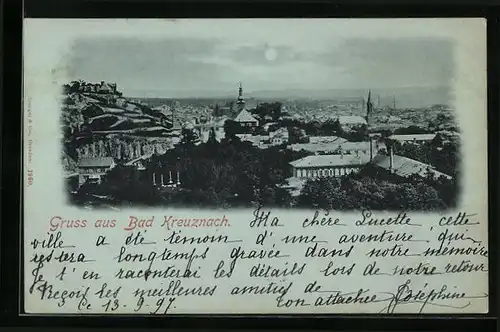 Gruss aus Bad Kreuznach.
Ma chère Lucette, cette
ville a été témoin d'une aventure qui
restera longtemps gravée dans notre mémoire
je t'en raconterai les détails lors de notre retour
Reçois les meilleures amitiés de
Ce 13-9-97.
ton attachée Joséphine
1260.